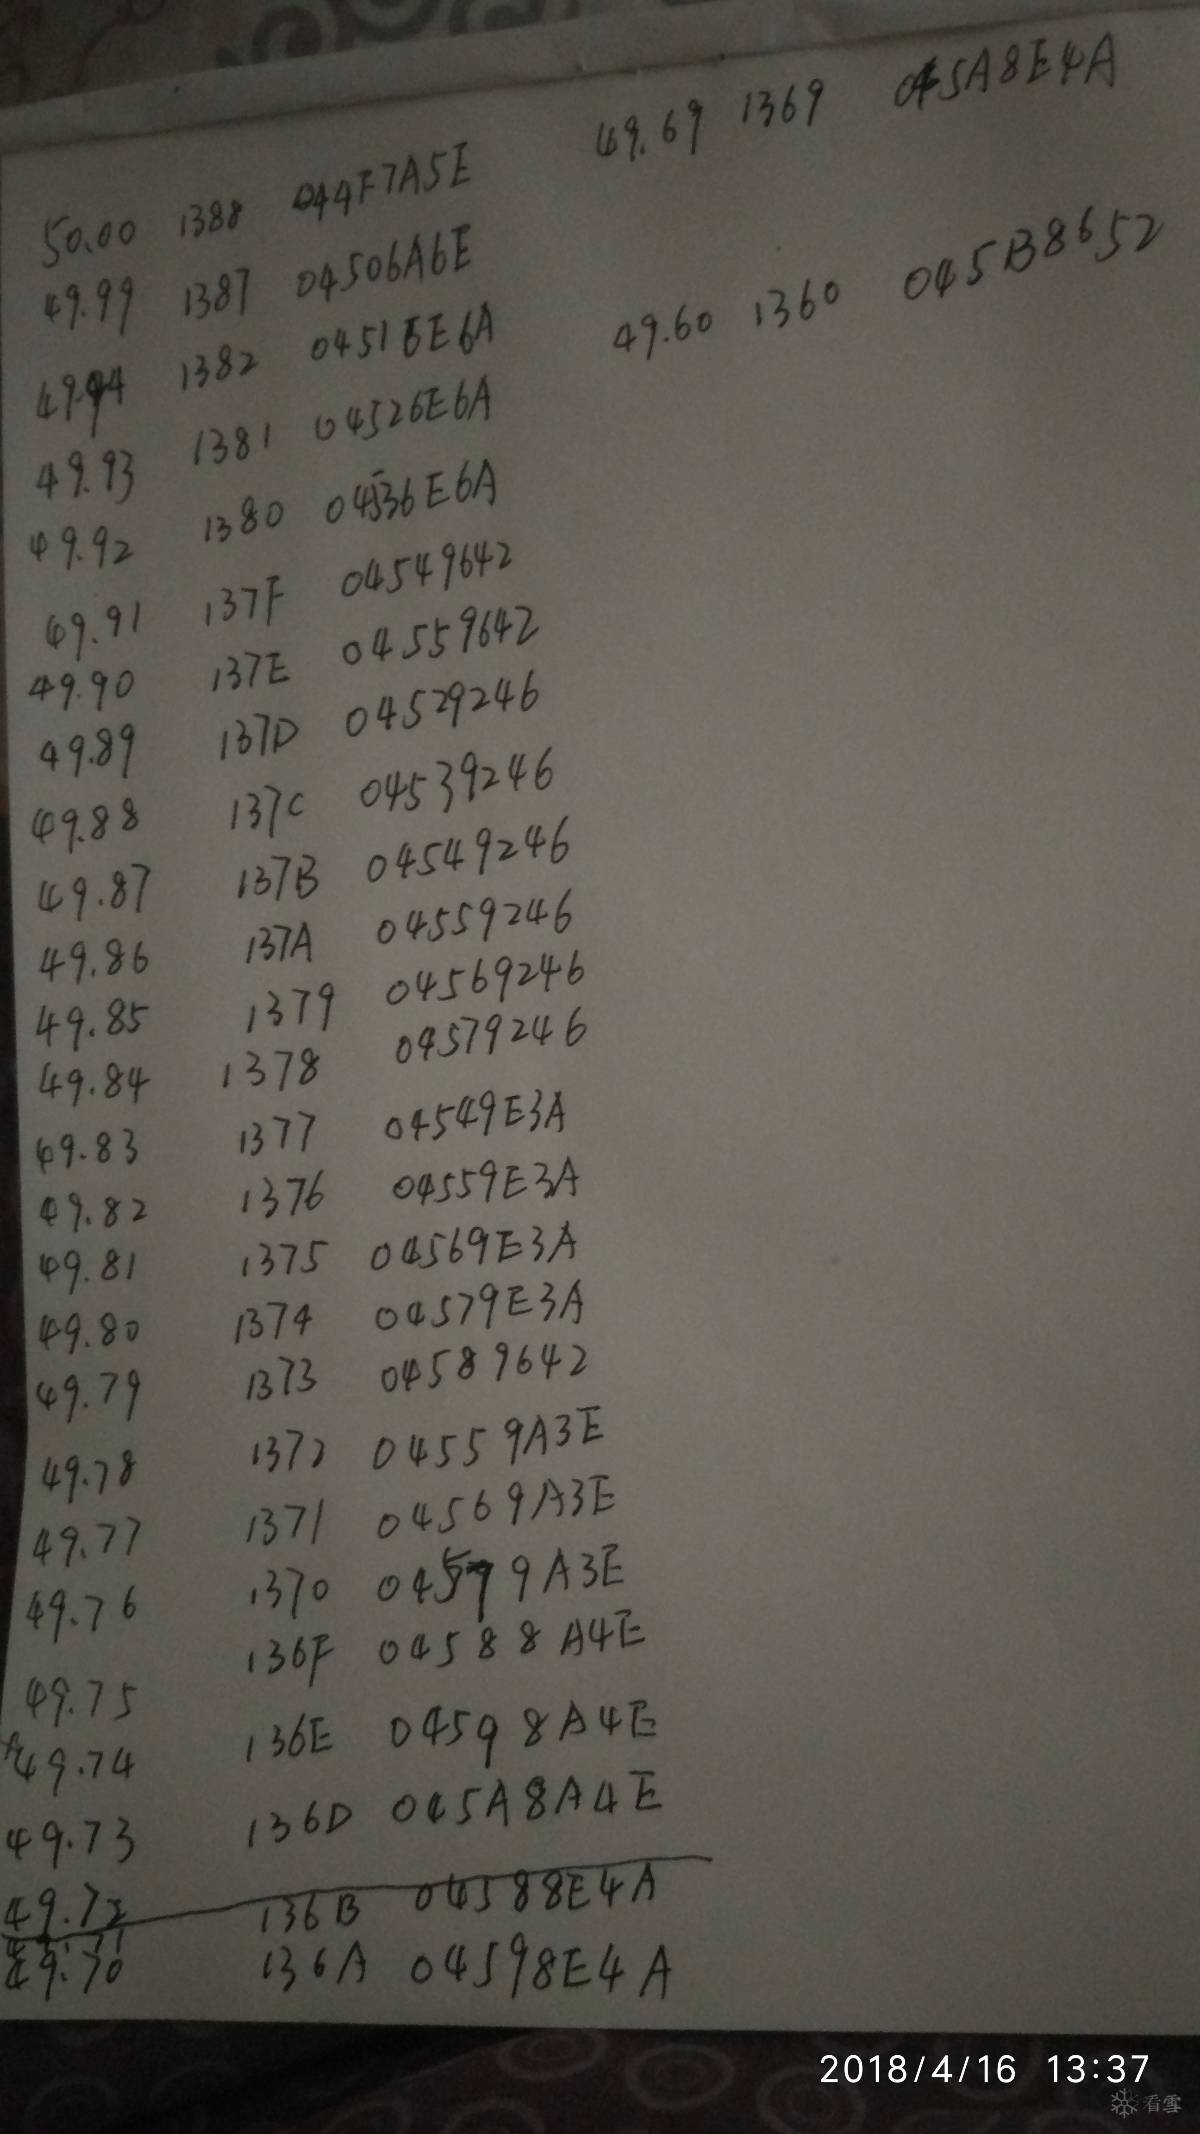 50.00 1388 044F7A5E
49.99 1387 04506A6E
49.94 1382 04516E6A
49.93 1381 04526E6A
49.92 1380 04536E6A
49.91 137F 04549642
49.90 137E 04559642
49.89 137D 04529246
49.88 137C 04539246
49.87 137B 04549246
49.86 137A 04559246
49.85 1379 04569246
49.84 1378 04579246
49.83 1377 04549E3A
49.82 1376 04559E3A
49.81 1375 04569E3A
49.80 1374 04579E3A
49.79 1373 04589642
49.78 1372 04559A3E
49.77 1371 04569A3E
49.76 1370 04579A3E
49.75 136F 04588A4E
49.74 136E 04598A4E
49.73 136D 045A8A4E
49.72
136B 04588E4A
49.70 136A 04598E4A
49.69 1369 045A8E4A
49.60 1360 045B8652
2018/4/16 13:37
看雪